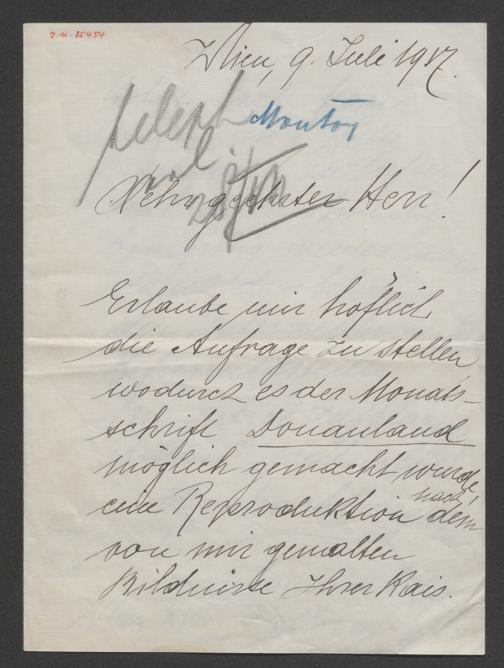 J.N. 85454
Wien, 9. Juli 1917.
Montag
teleph
Sehr geehrter Herr!
Erlaube mir höflich
die Anfrage zu stellen,
wodurch es der Monats-
schrift Donauland
möglich gemacht wurde,
eine Reproduktion nach dem
von mir gemalten
Bildnisse Ihrer Kais.